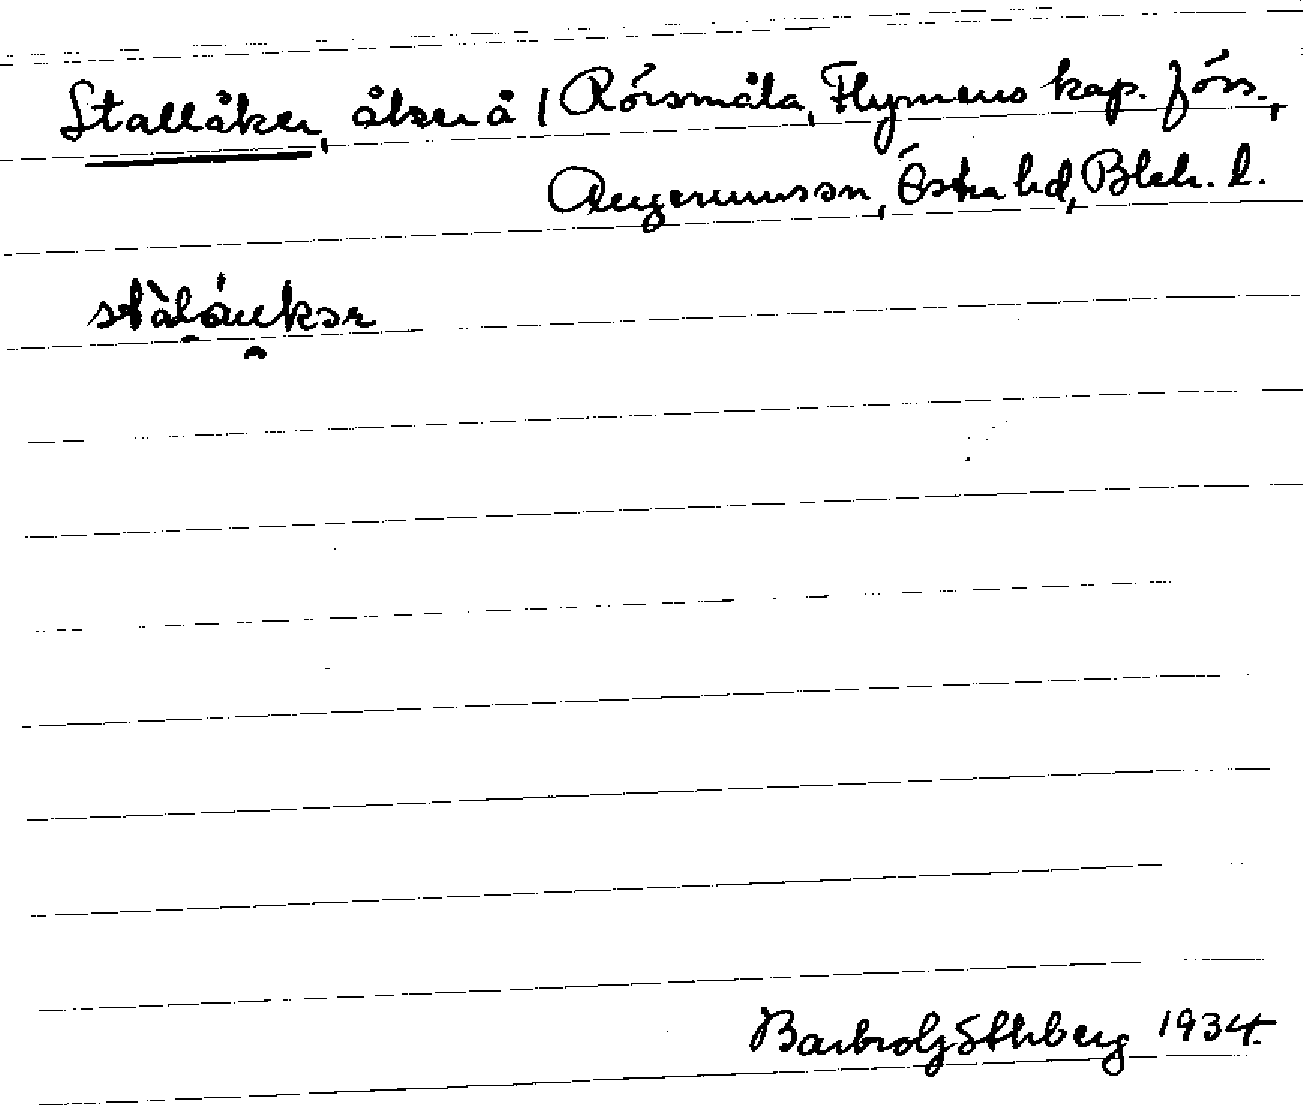 Stallåker, åker å Rörsmåla, Flymens kap. förs.,
Augerumssn, Östra hd, Blek. l.
Barbro Göthberg 1934.